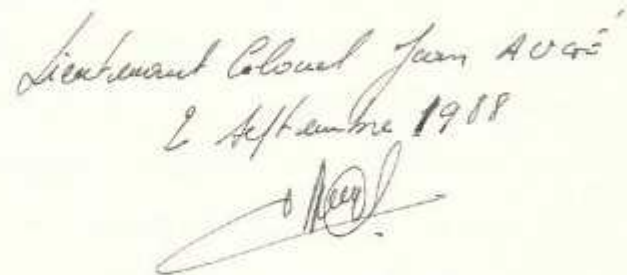 Lieutenant Colonel Jean AUGÉ
2 Septembre 1988